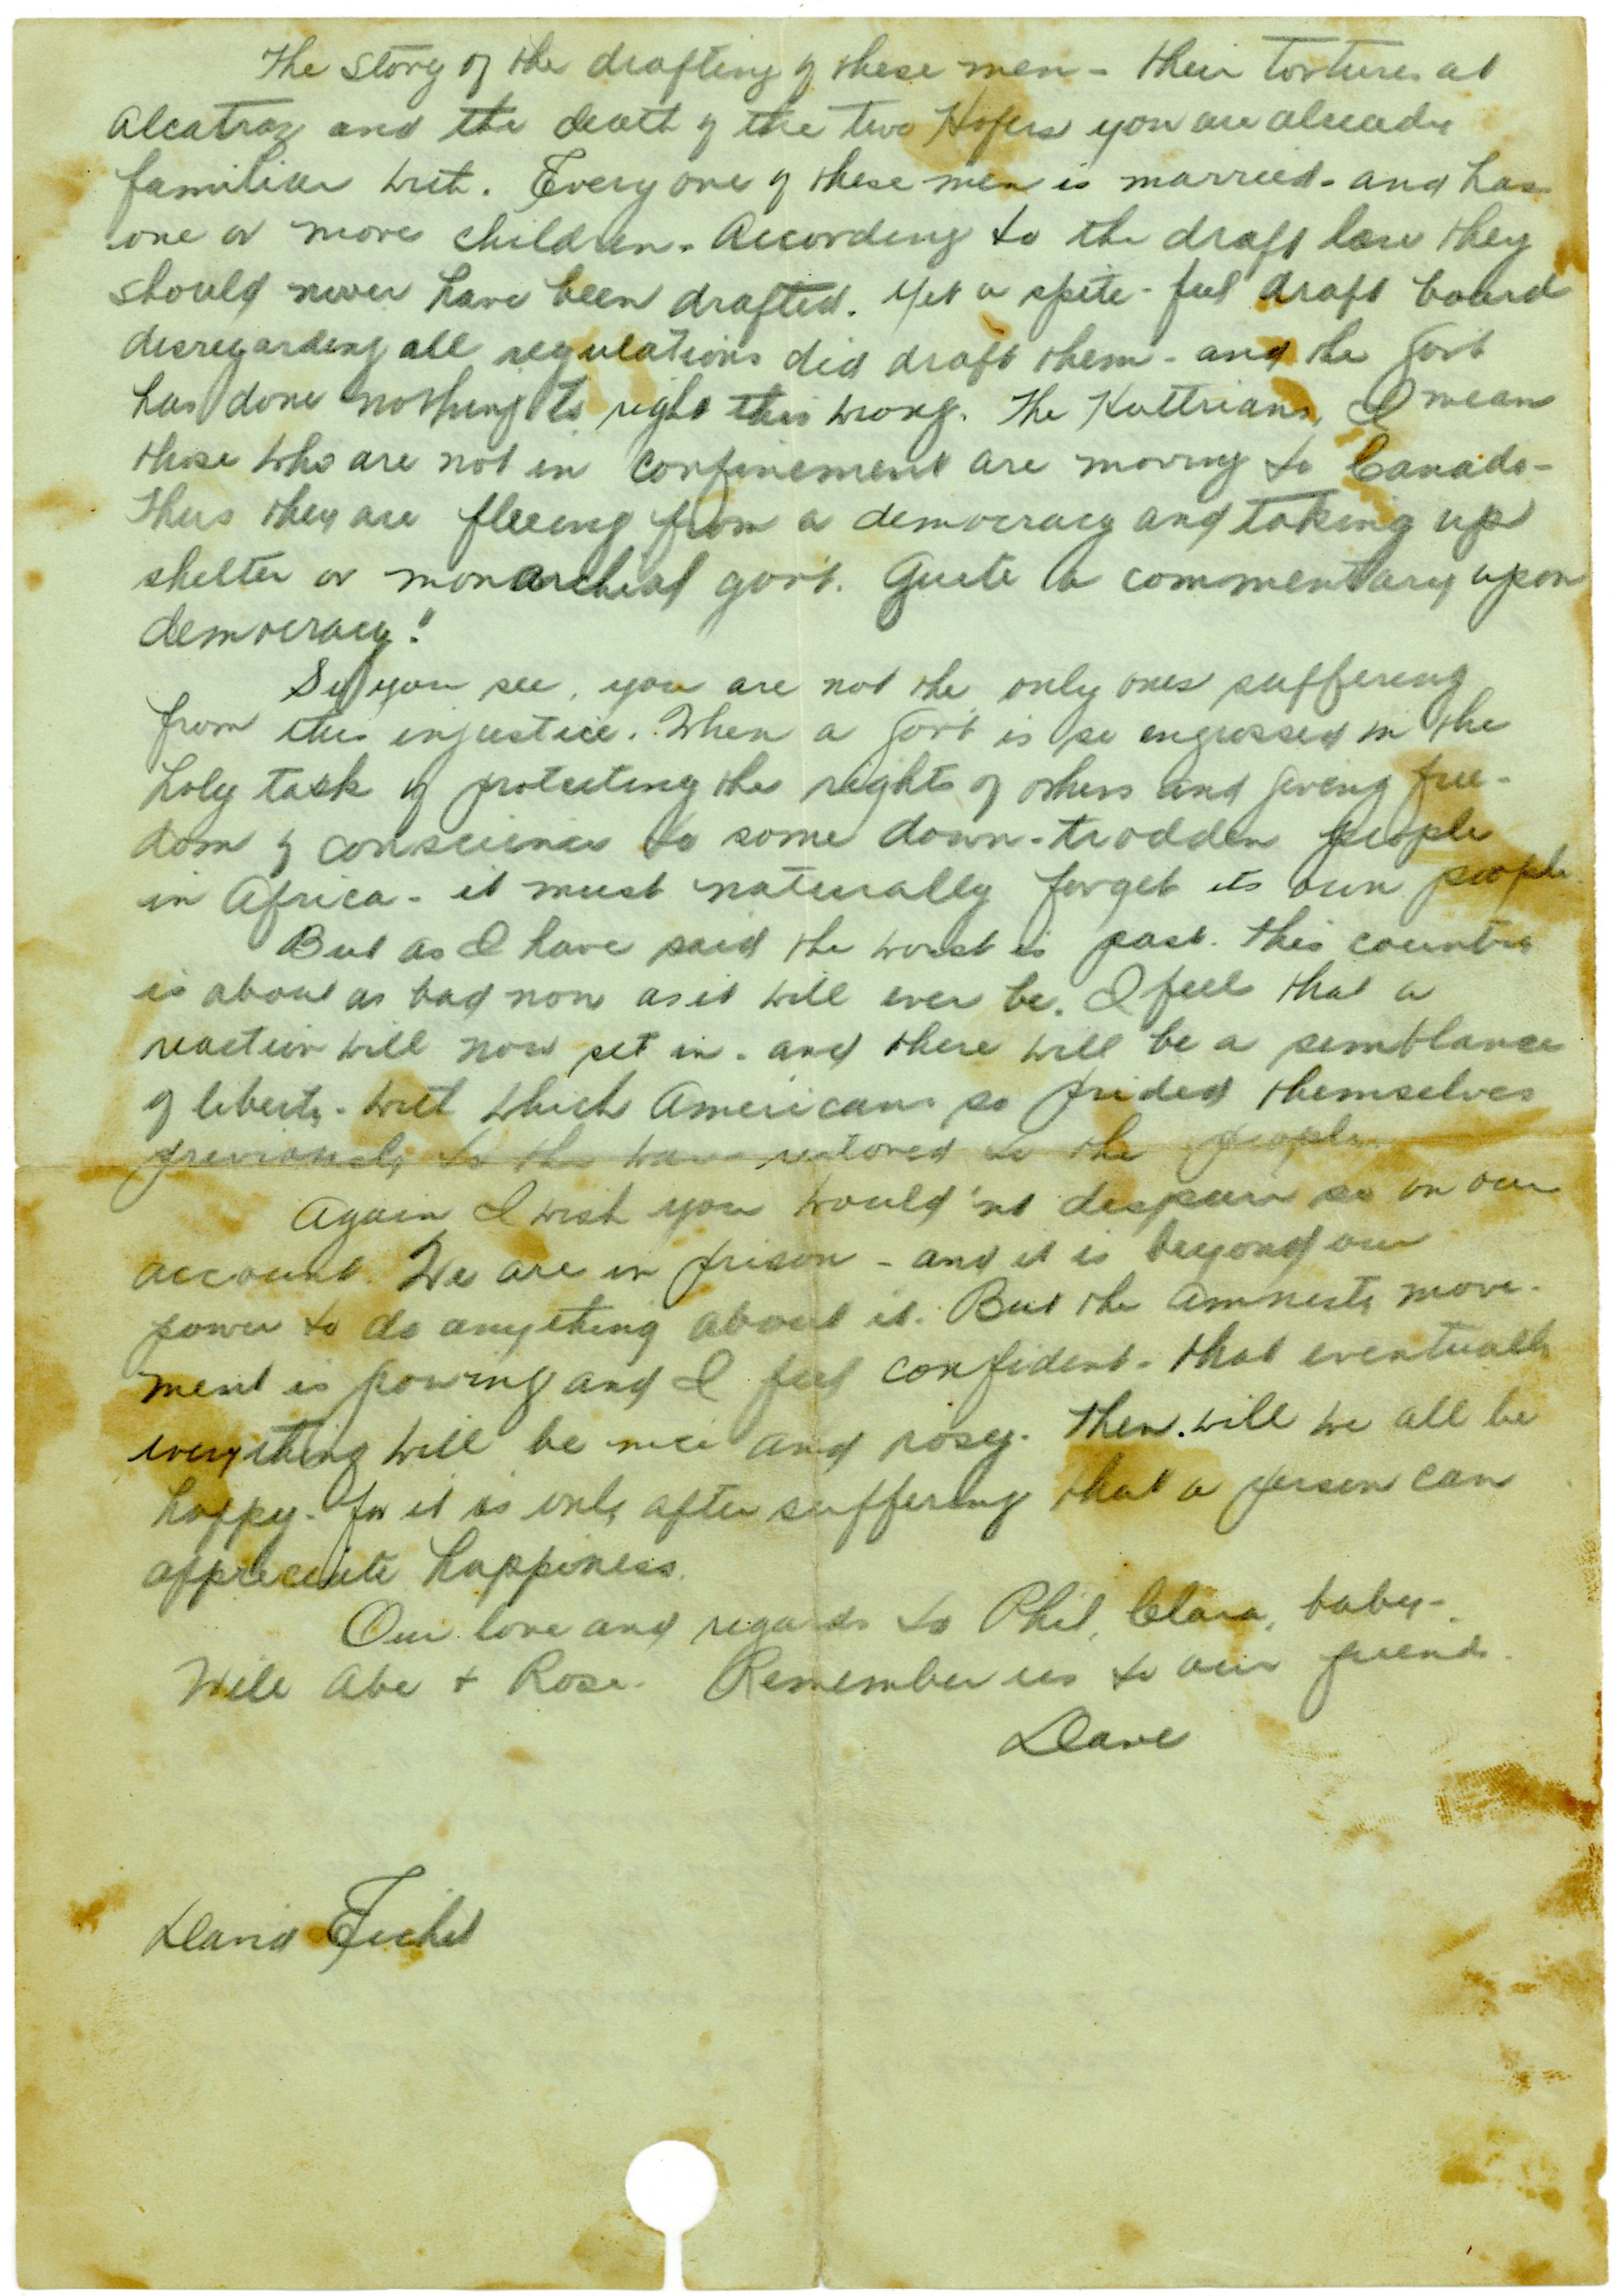 The story of the drafting of these men - their tortures at
Alcatraz and the death of the two Hofers you are already
familiar with. Every one of these men is married - and has
one or more children. According to the draft law they
should never have been drafted. Yet a spite-ful draft board
disregarding all regulations did draft them - and the Govt
has done nothing to right this wrong. The Huttrians, I mean
those who are not in confinement are moving to Canada -
Thus they are fleeing from a democracy and taking up
shelter or monarchial govt. Quite a commentary upon
democracy!
So you see, you are not the only ones suffering
from this injustice. When a Govt is so engrossed in the
holy task of protecting the rights of others and giving free-
dom of conscience to some down-trodden people
in Africa - it must naturally forget its own people.
But as I have said the worst is past. This country
is about as bad now as it will ever be. I feel that a
reaction will now set in - and there will be a semblance
of liberty - with which Americans so prided themselves
previously to the war - restored to the people.
Again I wish you would'nt despair so on our
account. We are in prison - and it is beyond our
power to do anything about it. But the amnesty move-
ment is growing and I feel confident - that eventually
everything will be nice and rosey. Then will we all be
happy - for it is only after suffering that a person can
appreciate happiness.
Our love and regards to Phil, Clara, baby -
Will Abe + Rose. Remember us to our friends.
Dave
David Eichel